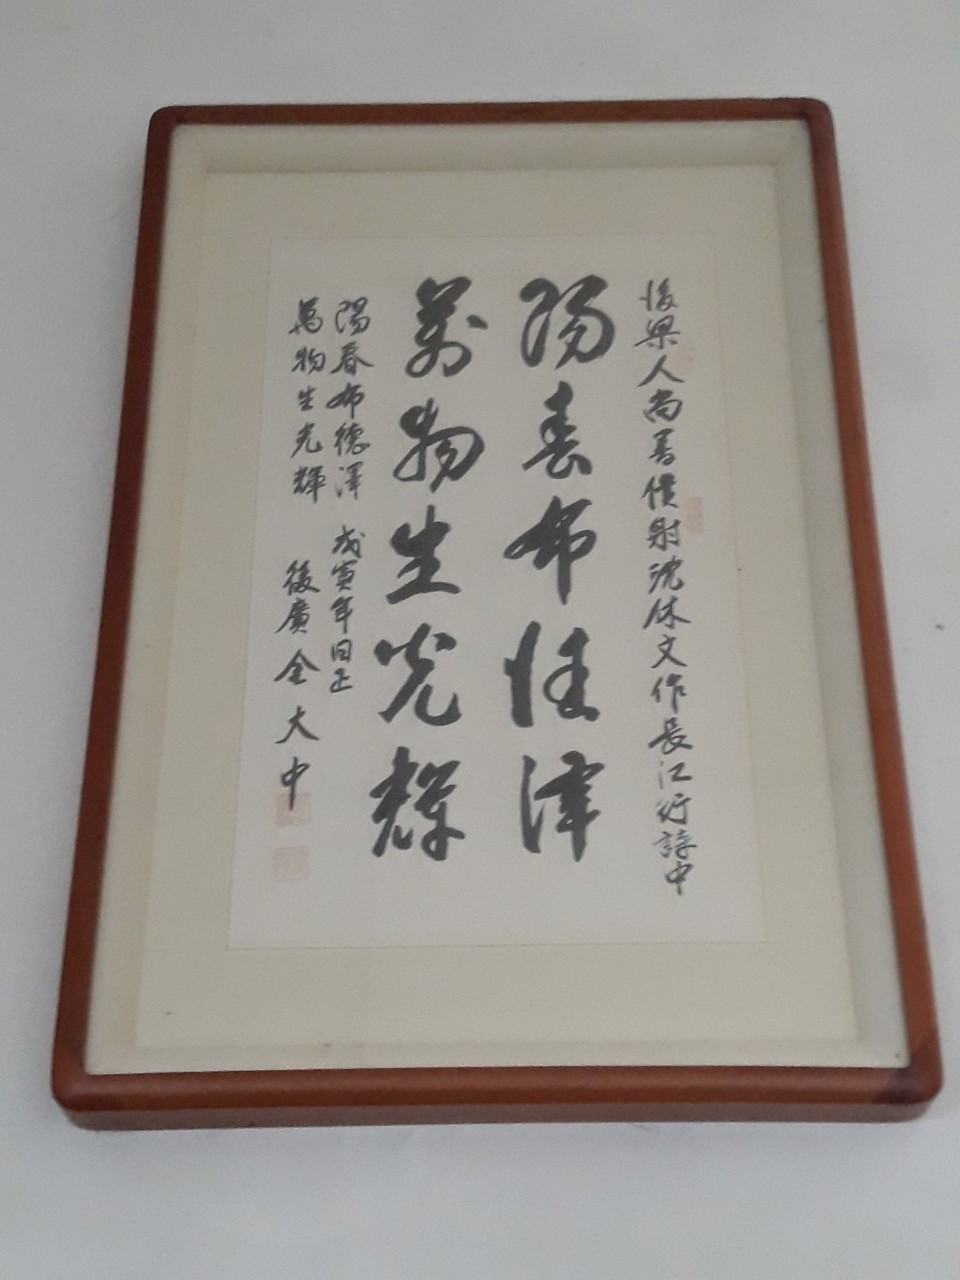 後梁人尚書僕射沈休文作長江行詩中
陽春布德澤
萬物生光輝
陽春布德澤 戊寅年日正
萬物生光輝
後廣 金大中